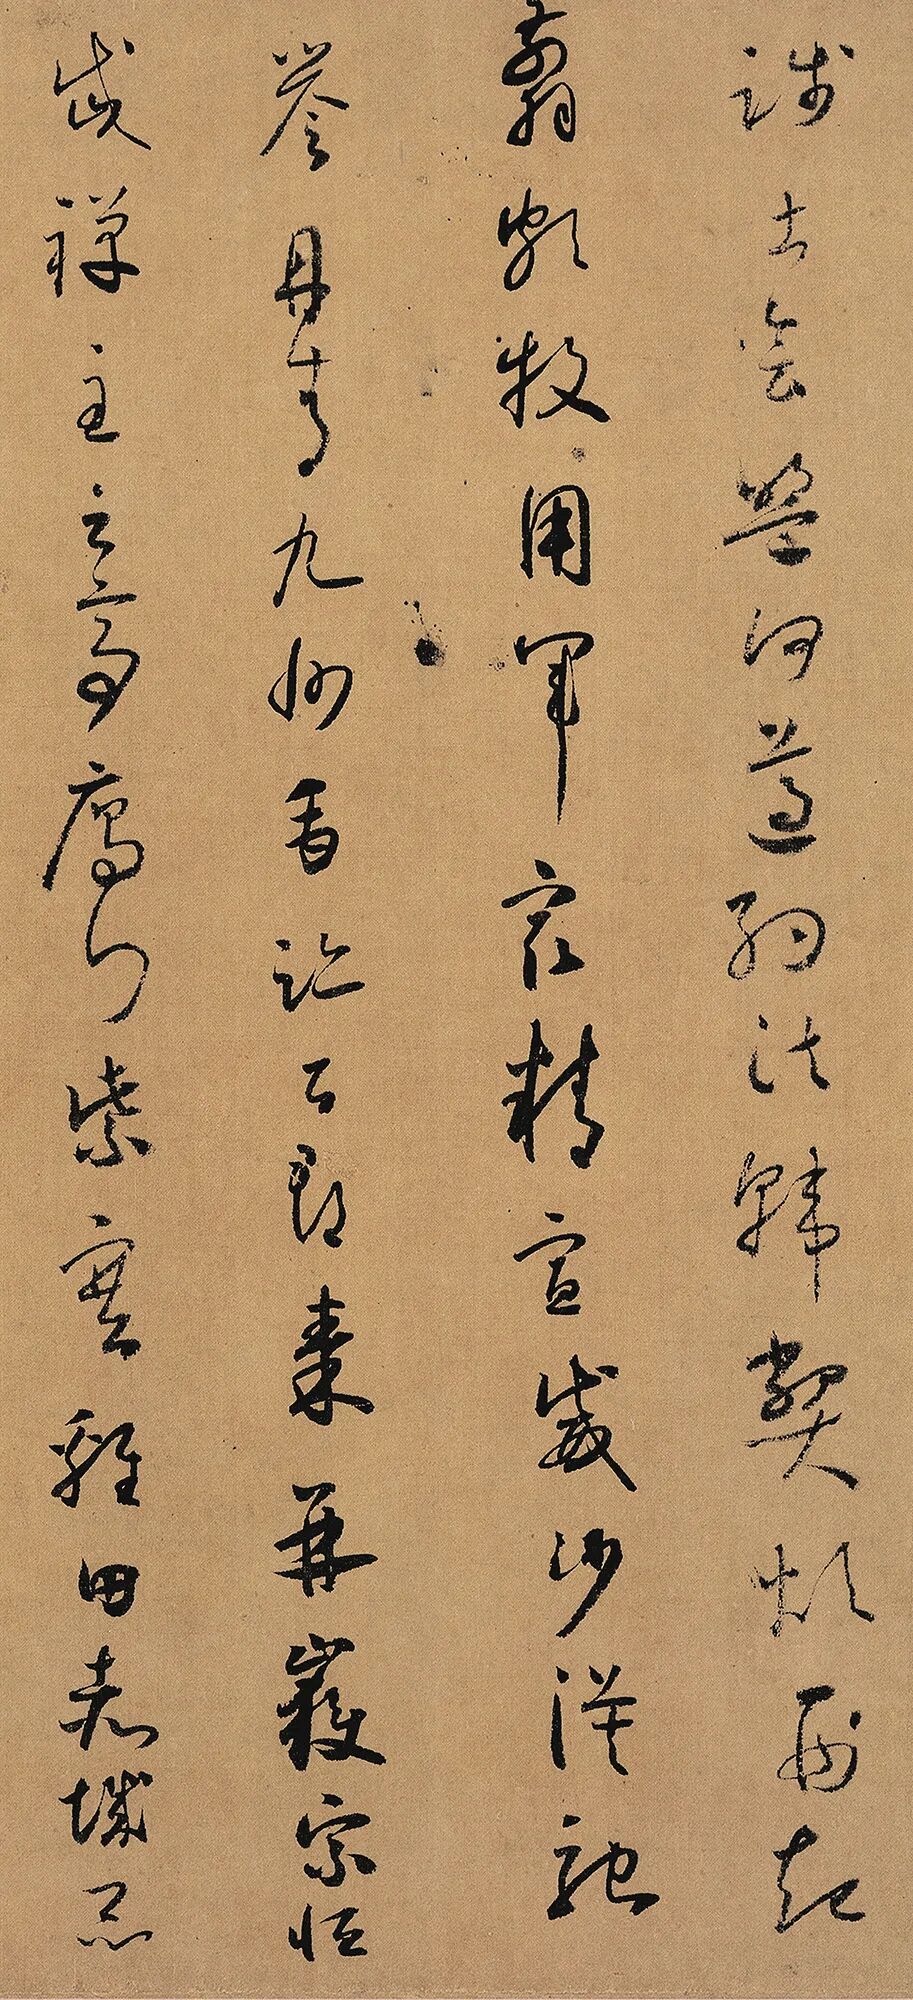 踐土會盟何遵約法韓弊煩刑起
翦頗牧用軍最精宣威沙漠馳
譽丹青九州禹跡百郡秦并嶽宗恒
岱禪主云亭鴈門紫塞雞田赤城昆